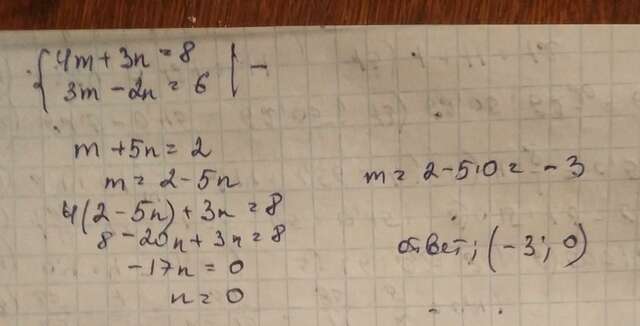 {4m + 3n = 8 | -
3m - 2n = 6
m + 5n = 2
m = 2 - 5n
4(2 - 5n) + 3n = 8
8 - 20n + 3n = 8
-17n = 0
n = 0
m = 2 - 5·0 = -3
ответ; (-3; 0)